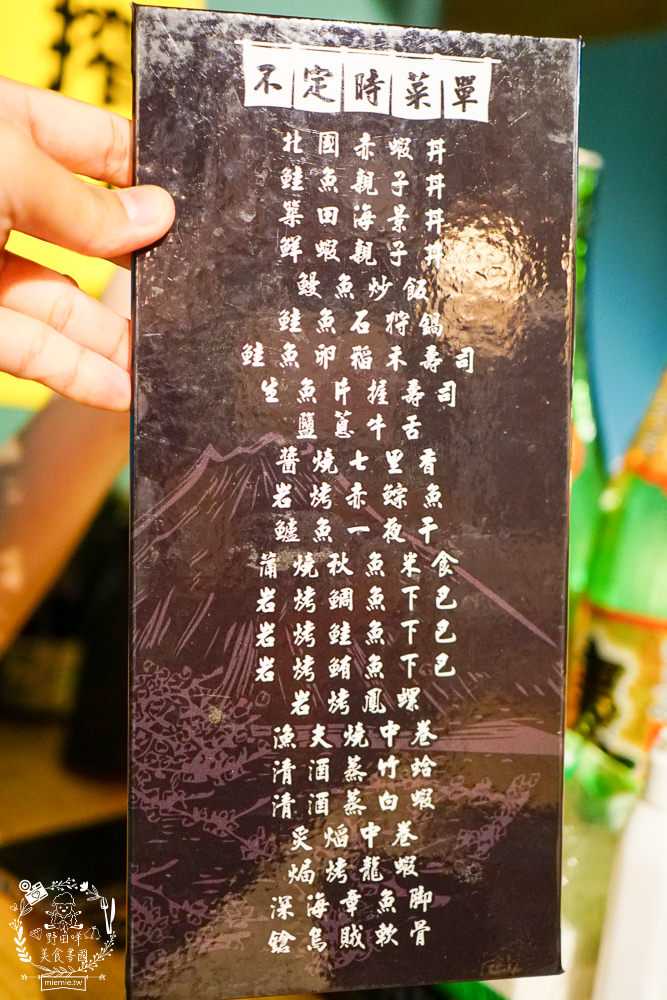 搾
不定時菜單
北國赤蝦丼
鮭魚親子丼
築田海景丼
鮮蝦親子丼
鰻魚炒飯
鮭魚石狩鍋
鮭魚卵稻禾壽司
生魚片握壽司
鹽蔥牛舌
醬燒七里香
岩烤赤鯮魚
鱸魚一夜干
蒲燒秋魚米食
岩烤鯛魚下巴
岩烤鮭魚下巴
岩烤鮪魚下巴
岩烤鳳螺
漁夫燒中卷
清酒蒸竹蛤
清酒蒸白蝦
炙焰中卷
焗烤龍蝦
深海章魚腳
鎗烏賊軟骨
野田咩
美食書園
miemie.tw